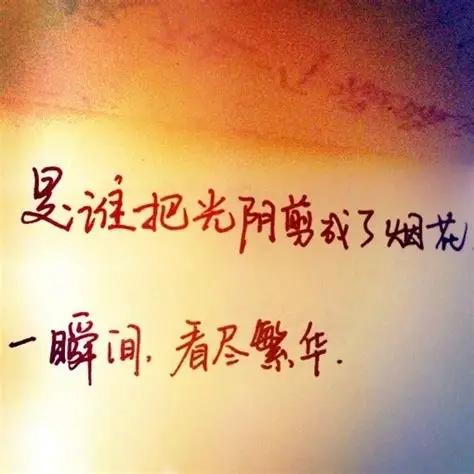 是谁把光阴剪成了烟花
一瞬间,看尽繁华.